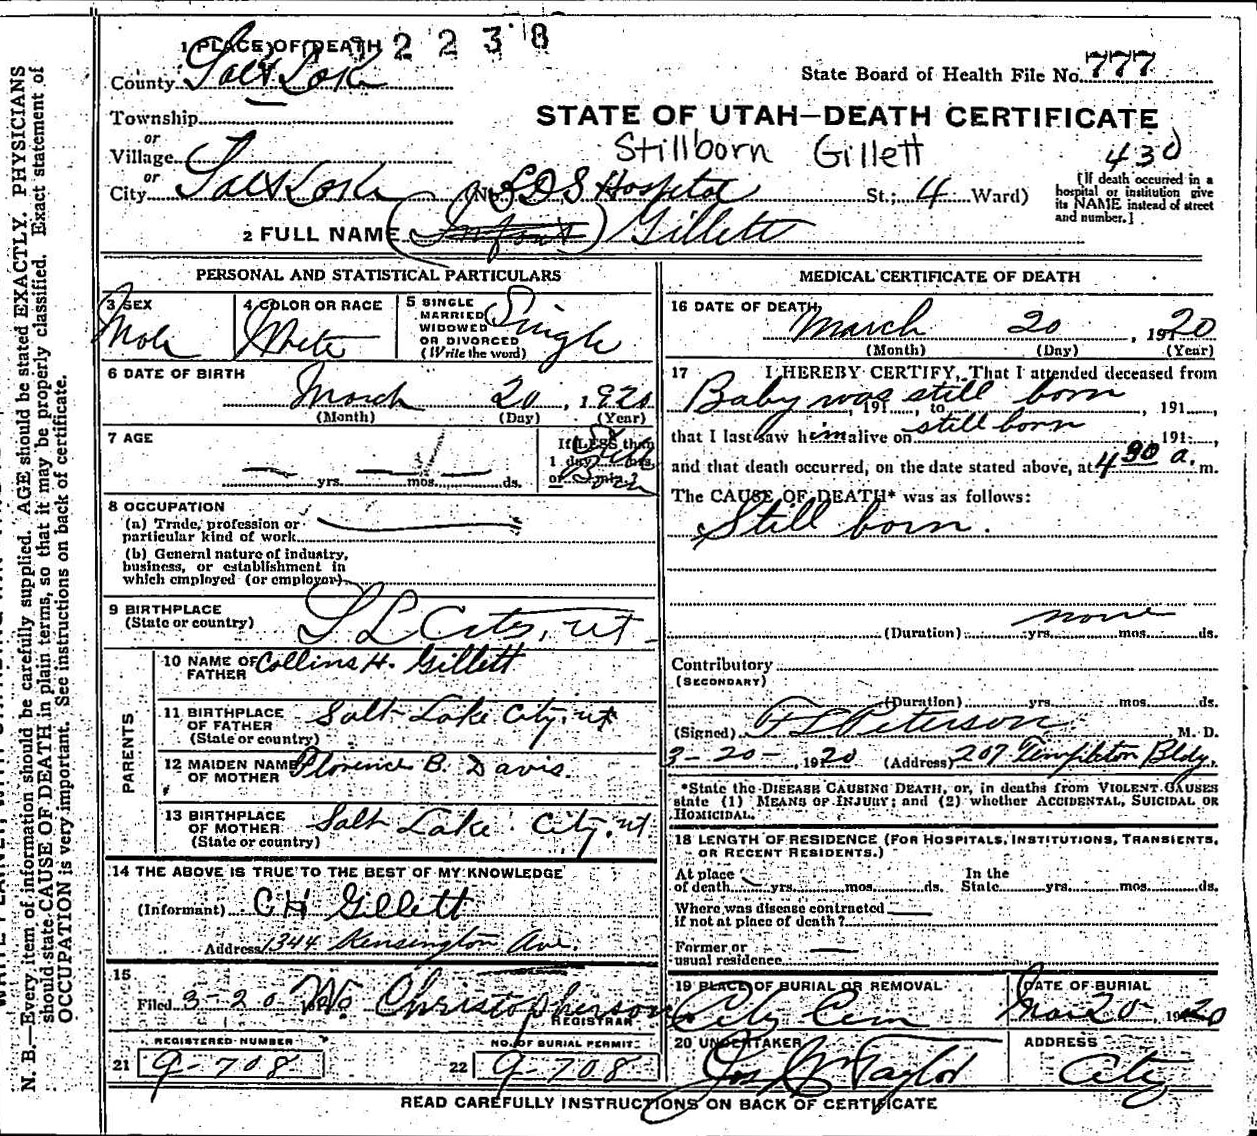 1 PLACE OF DEATH 2 2 3 8
County Salt Lake
State Board of Health File No. 777
Township
STATE OF UTAH—DEATH CERTIFICATE
or
Village
Stillborn Gillett 430
or
City Salt Lake (No. LDS Hospital St.; 4 Ward)
[If death occurred in a
hospital or institution give
its NAME instead of street
and number.]
2 FULL NAME (Infant) Gillett
PERSONAL AND STATISTICAL PARTICULARS
3 SEX
Male
4 COLOR OR RACE
White
5 SINGLE
MARRIED
WIDOWED
OR DIVORCED
(Write the word)
Single
6 DATE OF BIRTH
March 20, 1920
(Month) (Day) (Year)
7 AGE
yrs. mos. ds.
If LESS than
1 day hrs.
or min.?
Still Born
8 OCCUPATION
(a) Trade, profession or
particular kind of work
(b) General nature of industry,
business, or establishment in
which employed (or employer)
9 BIRTHPLACE
(State or country)
S L City, UT
PARENTS
10 NAME OF
FATHER
Collins H. Gillett
11 BIRTHPLACE
OF FATHER
(State or country)
Salt Lake City, ut
12 MAIDEN NAME
OF MOTHER
Florence B. Davis.
13 BIRTHPLACE
OF MOTHER
(State or country)
Salt Lake City, ut
14 THE ABOVE IS TRUE TO THE BEST OF MY KNOWLEDGE
(Informant) C H Gillett
Address 1344 Kensington Ave.
15
Filed 3-20 W. Christopherson
REGISTRAR
REGISTERED NUMBER
21 9-708
NO. OF BURIAL PERMIT
22 9-708
MEDICAL CERTIFICATE OF DEATH
16 DATE OF DEATH
March 20, 1920
(Month) (Day) (Year)
17 I HEREBY CERTIFY, That I attended deceased from
Baby was still born
, 191 , to , 191 ,
that I last saw him alive on still born 191 ,
and that death occurred, on the date stated above, at 4 30 a. m.
The CAUSE OF DEATH* was as follows:
Still born.
none
(Duration) yrs. mos. ds.
Contributory
(SECONDARY)
(Duration) yrs. mos. ds.
(Signed) F L Peterson M. D.
3-20-, 1920 (Address) 207 Templeton Bldg.
*State the DISEASE CAUSING DEATH, or, in deaths from VIOLENT CAUSES
state (1) MEANS OF INJURY; and (2) whether ACCIDENTAL, SUICIDAL OR
HOMICIDAL.
18 LENGTH OF RESIDENCE (FOR HOSPITALS, INSTITUTIONS, TRANSIENTS,
OR RECENT RESIDENTS.)
At place
of death yrs. mos. ds.
In the
State yrs. mos. ds.
Where was disease contracted
if not at place of death?
Former or
usual residence
19 PLACE OF BURIAL OR REMOVAL
City Cem
DATE OF BURIAL
Mar 20, 1920
20 UNDERTAKER
Jos Wm Taylor
ADDRESS
City
READ CAREFULLY INSTRUCTIONS ON BACK OF CERTIFICATE
N. B.—Every item of information should be carefully supplied. AGE should be stated EXACTLY. PHYSICIANS
should state CAUSE OF DEATH in plain terms, so that it may be properly classified. Exact statement of
OCCUPATION is very important. See instructions on back of certificate.